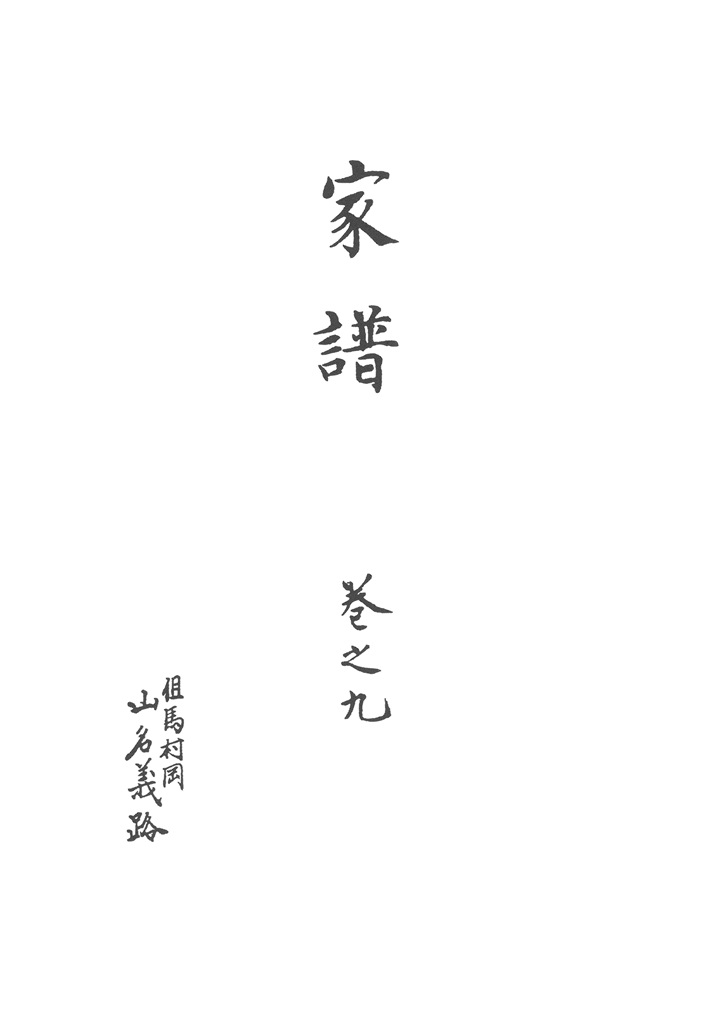 家譜 巻之九
但馬村岡
山名義路